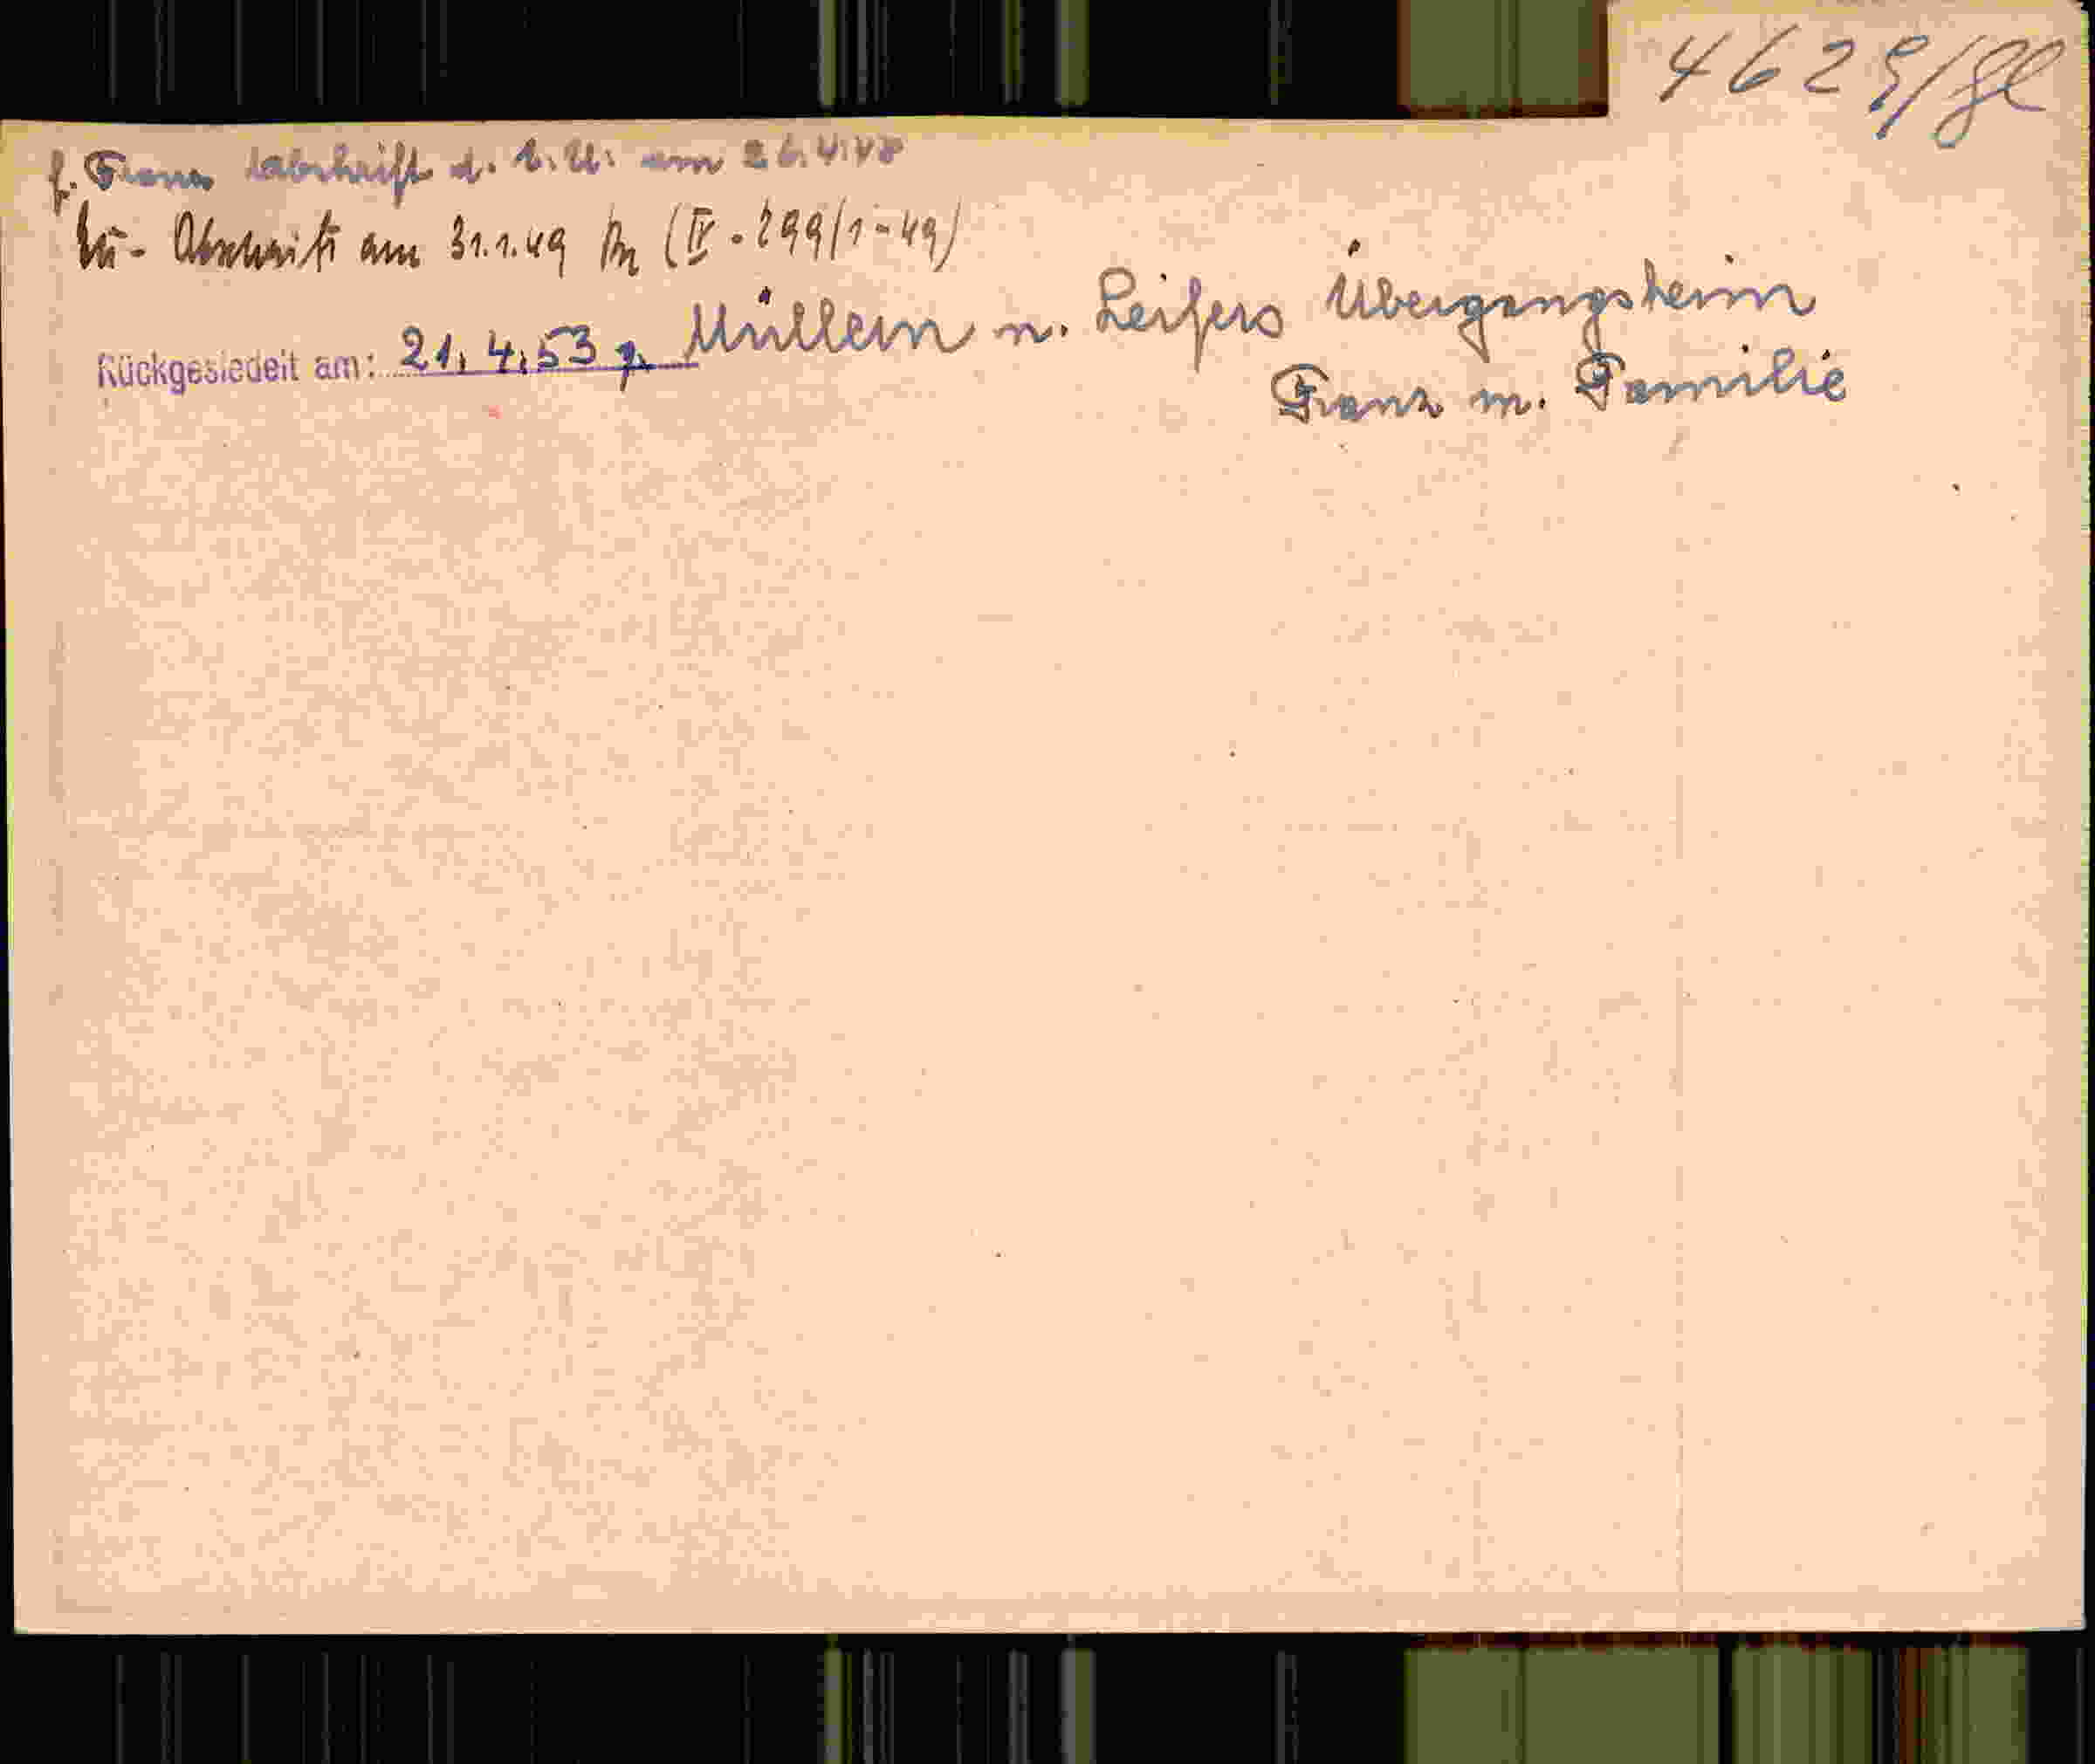 4629/Gl
f. Franz Abschrift d. E.U. am 26.4.48
Eü- Abschrift am 31.1.49 (IV - 299/1-49)
Rückgesiedelt am: 21.4.53 Müllein n. Leifers Übergangsheim
Franz m. Familie